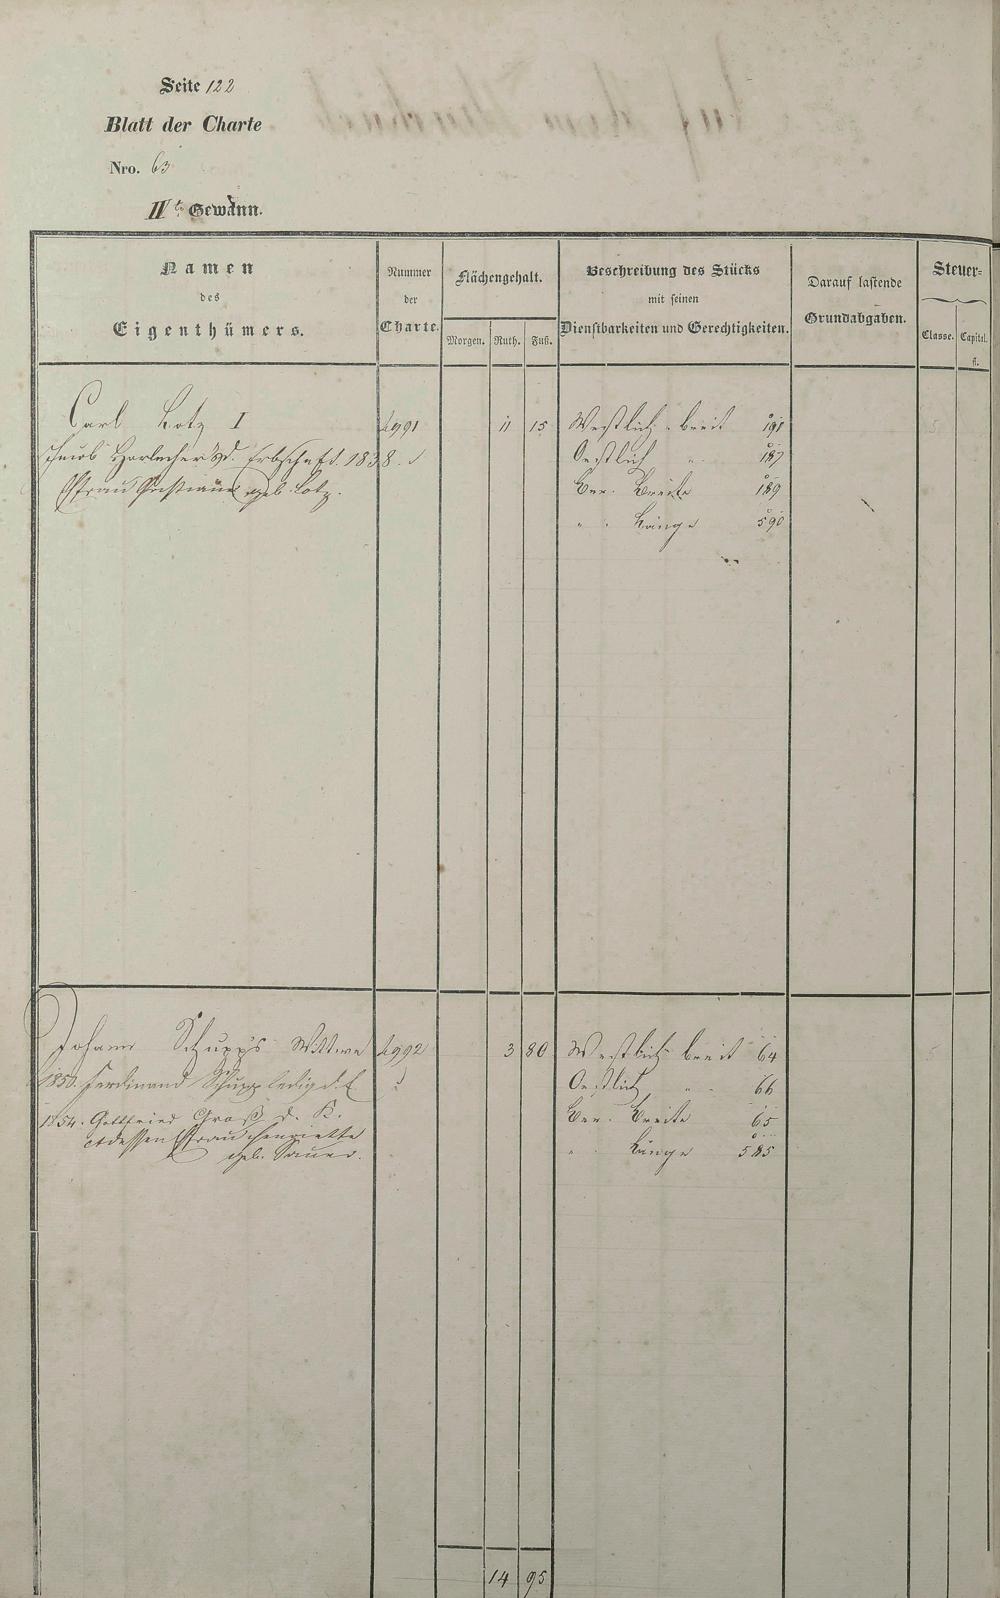 Seite 122
Blatt der Charte
Nro. 63
IIte Gewann.
Namen
des
Eigenthümers.
Nummer
der
Charte.
Flächengehalt.
Morgen. Ruth. Fuß.
Beschreibung des Stücks
mit seinen
Dienstbarkeiten und Gerechtigkeiten.
Darauf lastende
Grundabgaben.
Steuer=
Classe. Capital.
fl.
Carl Lotz I 4991 11 15 Westlich breit 191
Jacob Horlacher d. Erbschaft. 1838. Oestlich " 187
Efrau geb. Lotz. Ber. Breite 189
" Länge 590
Johann Schupp's Wittwe 4992 3 80 Westlich breit 64
1850. Ferdinand Schupp ledig d. E Oestlich " 66
1854. Gottfried Groß d. K. Ber. Breite 65
et dessen Efrau Henriette
" Länge 585
geb. Sauer.
14 95